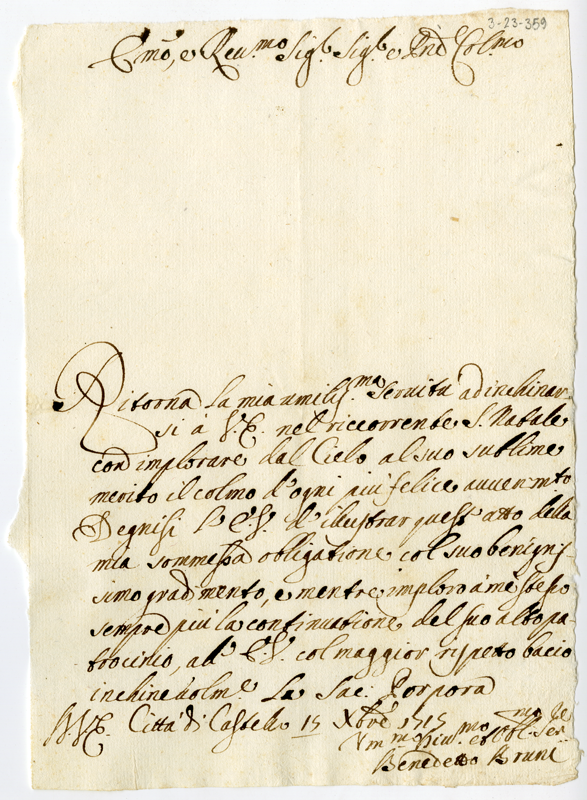 3-23-359
Emo, e Reu.mo Sig.r Sig.r e Pne Col.mo
Ritorna la mia umiliss.ma seruitù ad inchinar
si à V.E. nel riccorrente S. Natale
con implorare dal Cielo al suo sublime
merito il colmo d'ogni più felice auuenimto
Degnisi l'E.V. d'illustrar quest'atto della
mia sommessa obligatione col suo benignis
simo gradimento, e mentre imploro à me stesso
sempre più la continuatione del suo alto pa
trocinio, all'E.V. col maggior rispetto bacio
inchinedolmte La Sac. Porpora
D.V.E. Città di Castello 15 Xbre 1715
Deuot.mo et Obl.
Benedetto Bruni